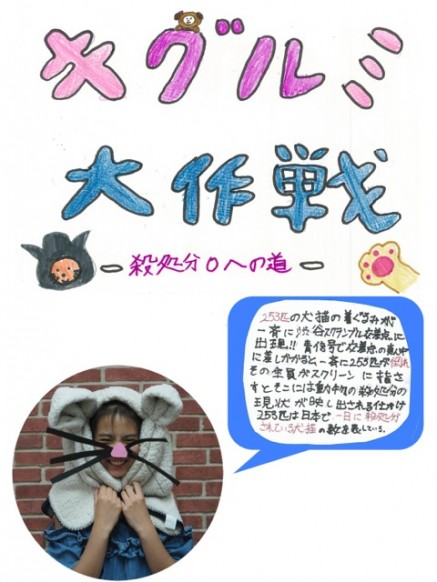 キグルミ
大作戦
－殺処分0への道－
253匹の犬猫の着ぐるみが
一斉に渋谷スクランブル交差点に
出現!! 青信号で交差点の真ん中
に差しかかると一斉に253匹が
その全員がスクリーンに指さ
すとそこには動物の殺処分の
現状が映し出される仕かけ
253匹は日本で一日に殺処分
されている犬猫の数を表している。